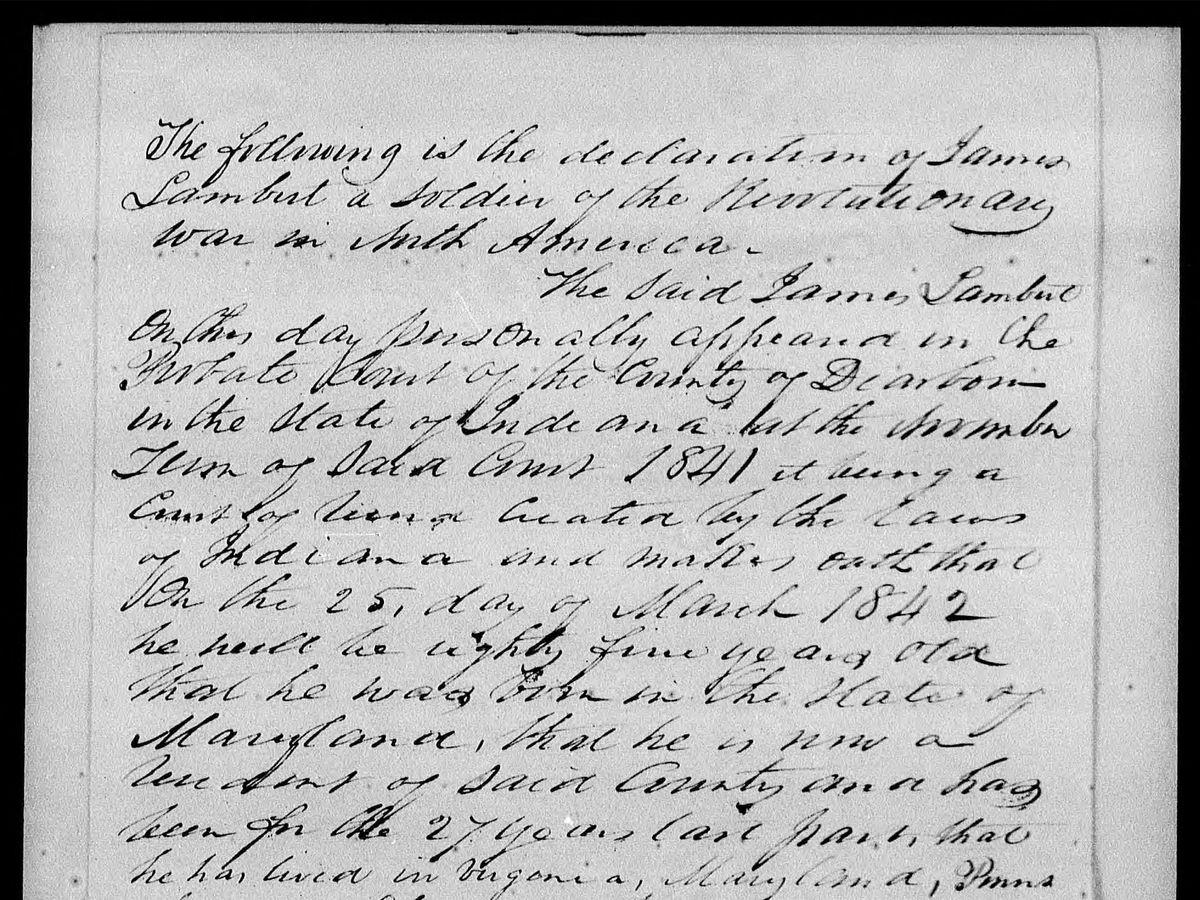 The following is the declaration of James
Lambert a soldier of the Revolutionary
War in North America.
The said James Lambert
On this day personally appeared in the
Probate Court of the County of Dearborn
in the State of Indiana at the November
Term of said Court 1841 it being a
Court of Record created by the laws
of Indiana and makes oath that
On the 25, day of March 1842
he will be eighty five years old
that he was born in the State of
Maryland, that he is now a
resident of said County and has
been for the 27 years last past, that
he has lived in Virginia, Maryland, Penns